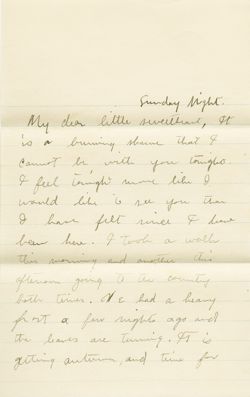 Sunday Night.
My dear little sweetheart, It
is a burning shame that I
cannot be with you tonight.
I feel tonight more like I
would like to see you than
I have felt since I have
been here. I took a walk
this morning and another this
afternoon going to the country
both times. We had a heavy
frost a few nights ago and
the leaves are turning. It is
getting autumn, and time for